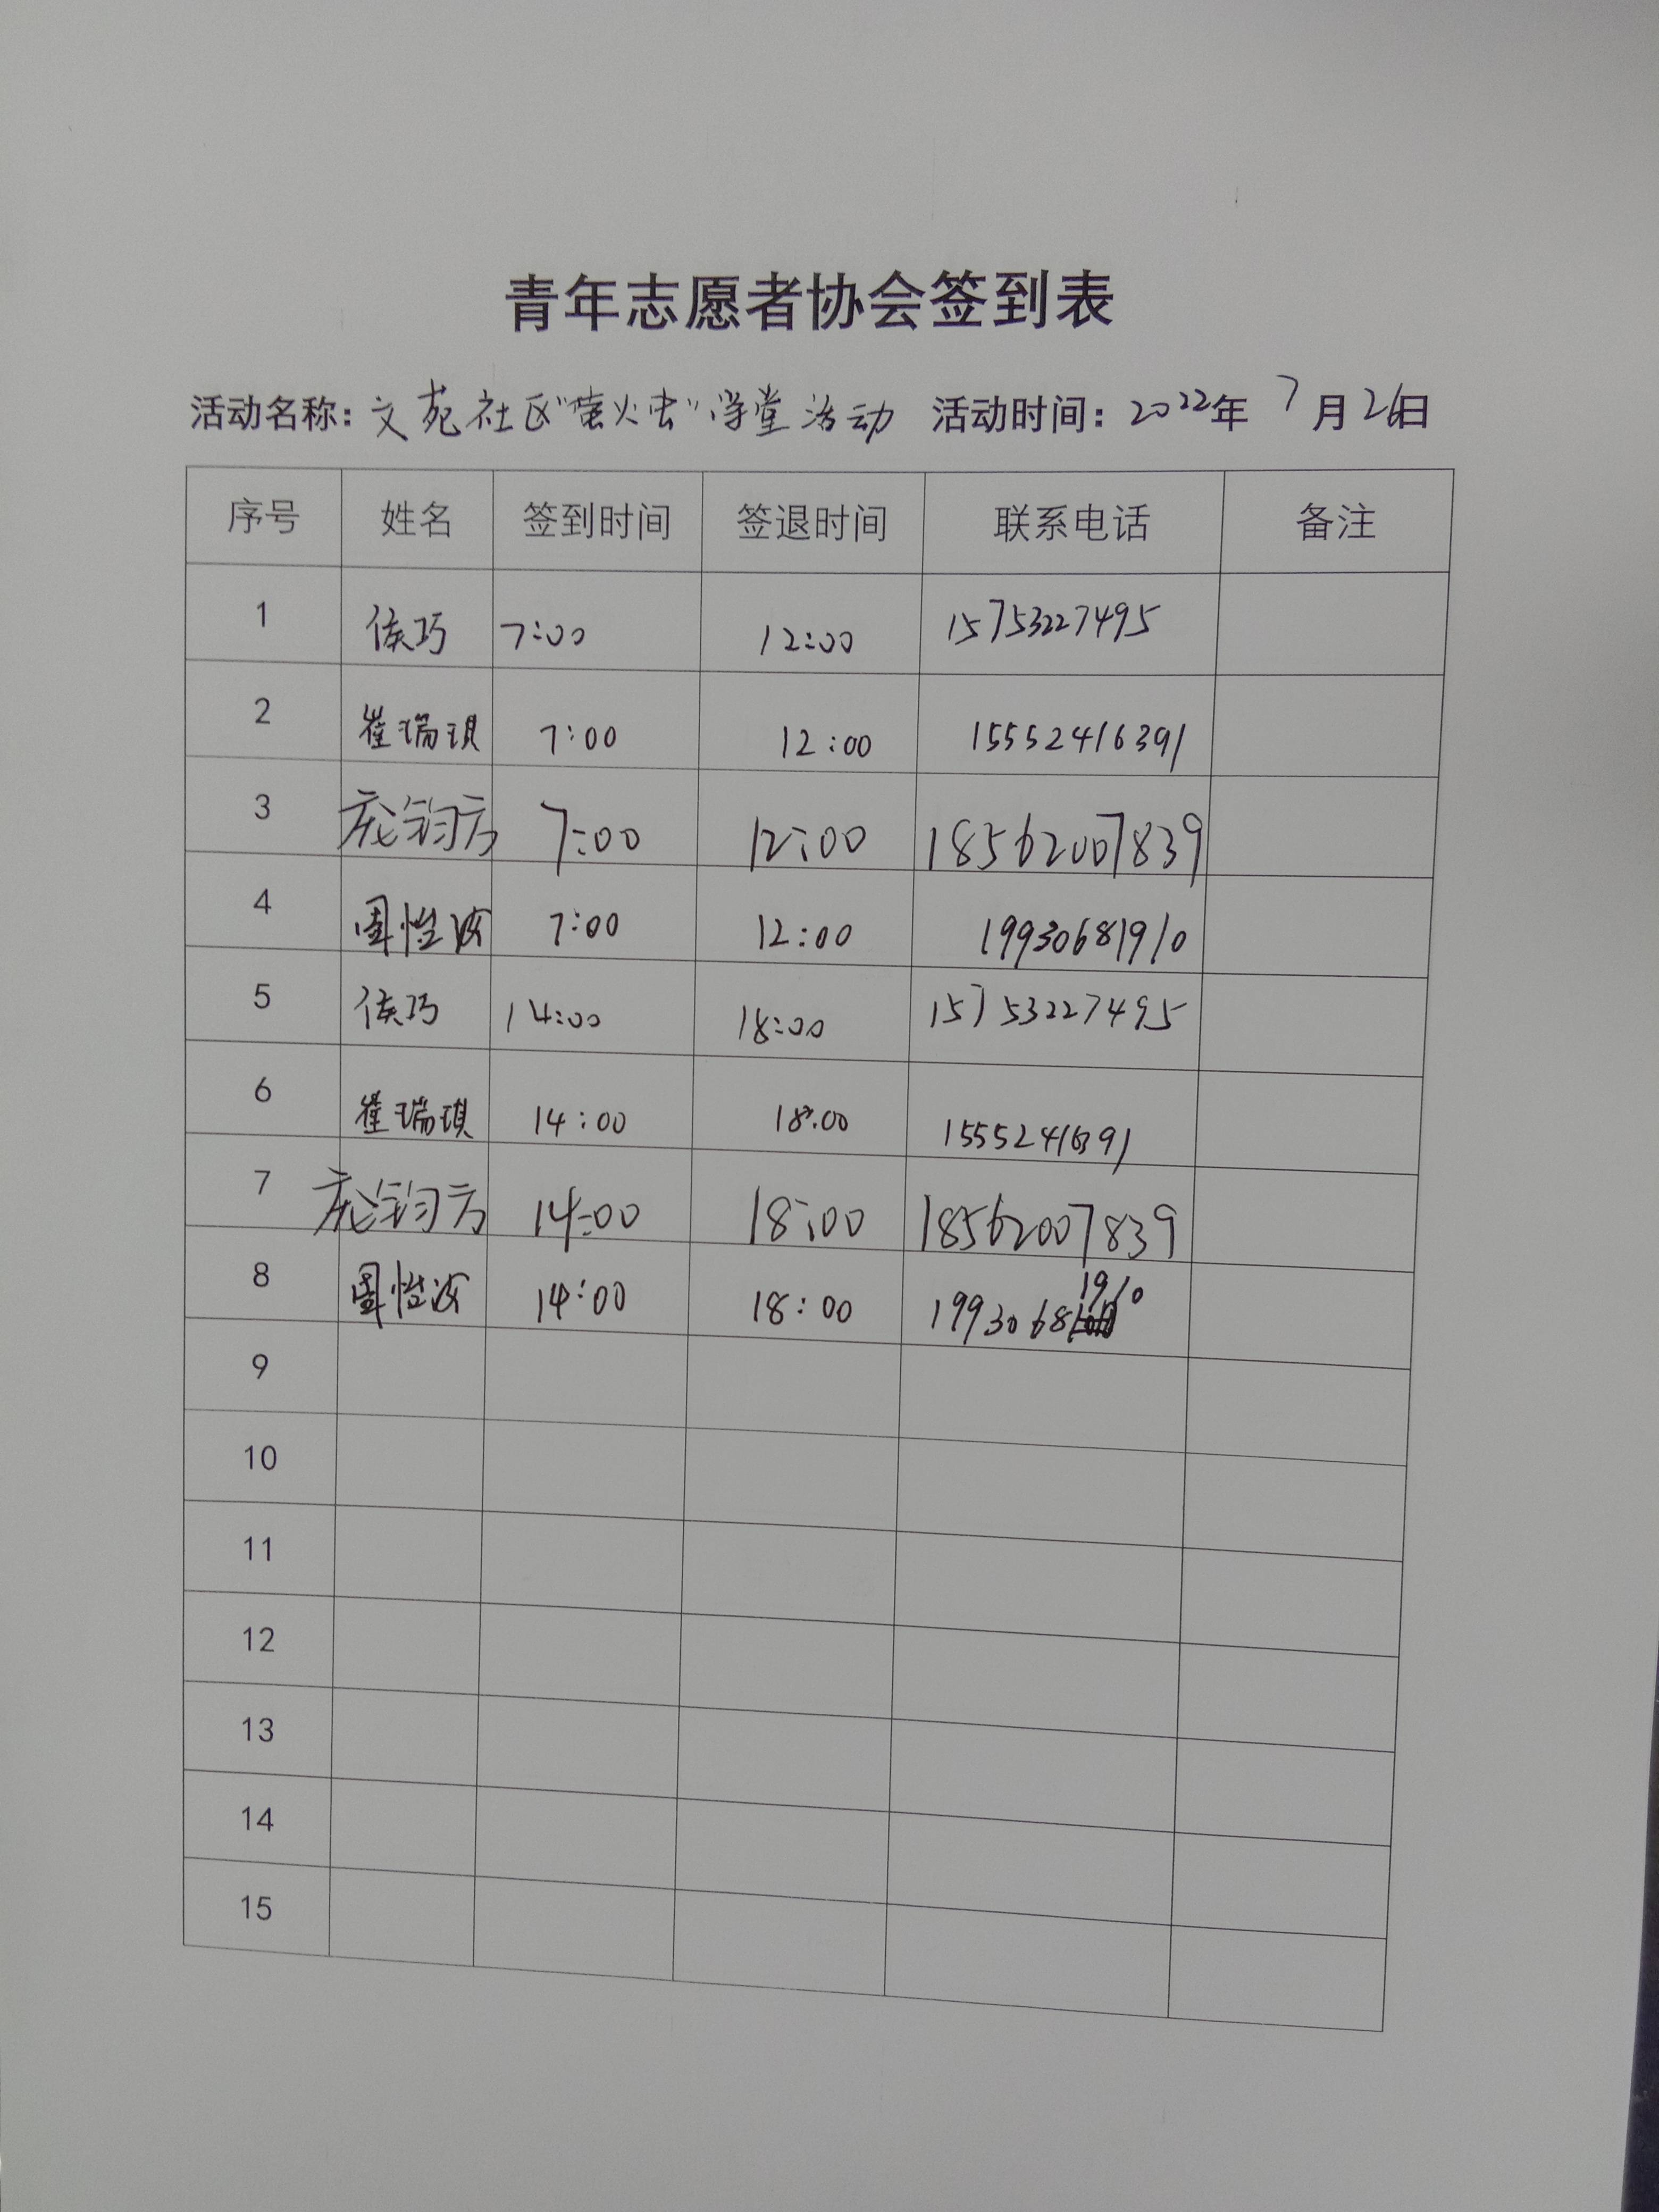 青年志愿者协会签到表
活动名称：文苑社区"萤火虫"学堂活动 活动时间：2022年 7月26日
序号 姓名 签到时间 签退时间 联系电话 备注
1 侯巧 7:00 12:00 15753227495
2 崔瑞琪 7:00 12:00 15552416391
3 庞钧方 7:00 12:00 18562007839
4 7:00 12:00 19930681910
5 侯巧 14:00 18:00 15753227495
6 崔瑞琪 14:00 18:00 15552416391
7 庞钧方 14:00 18:00 18562007839
8 14:00 18:00 19930681910
9
10
11
12
13
14
15